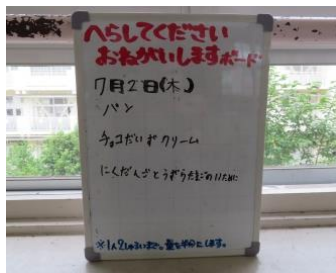 へらしてください
おねがいしますボード
7月2日(木)
パン
チョコだいずクリーム
にんじんとうずらたまごの
※1人2しゅるいまで。量を半分にします。